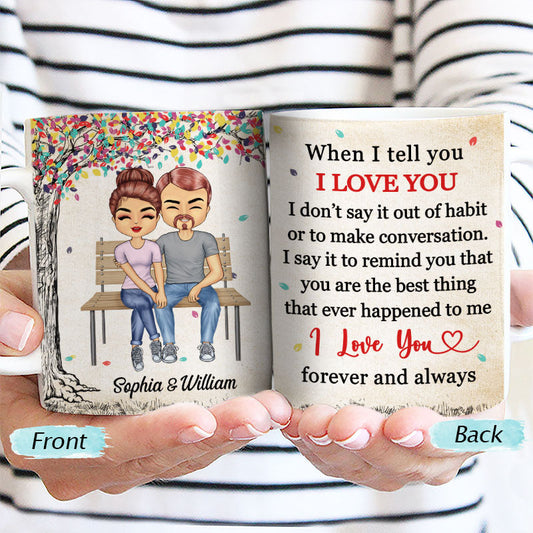 Sophia & William
Front
When I tell you
I LOVE YOU
I don't say it out of habit
or to make conversation.
I say it to remind you that
you are the best thing
that ever happened to me
I Love You
forever and always
Back